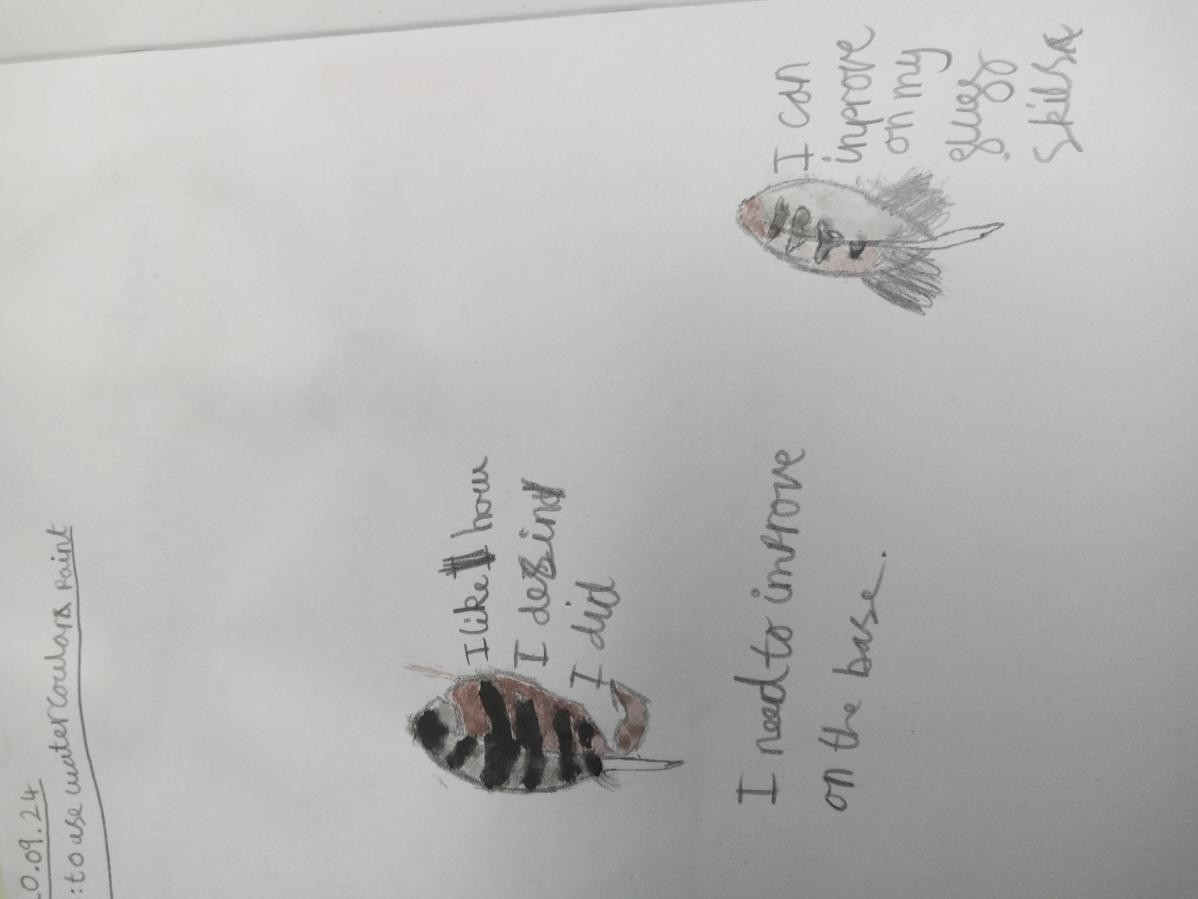 0.09.24
: to use watercoulars paint
I like how
I desind
I did
I need to improve
on the base.
I can
inprove
on my
skills